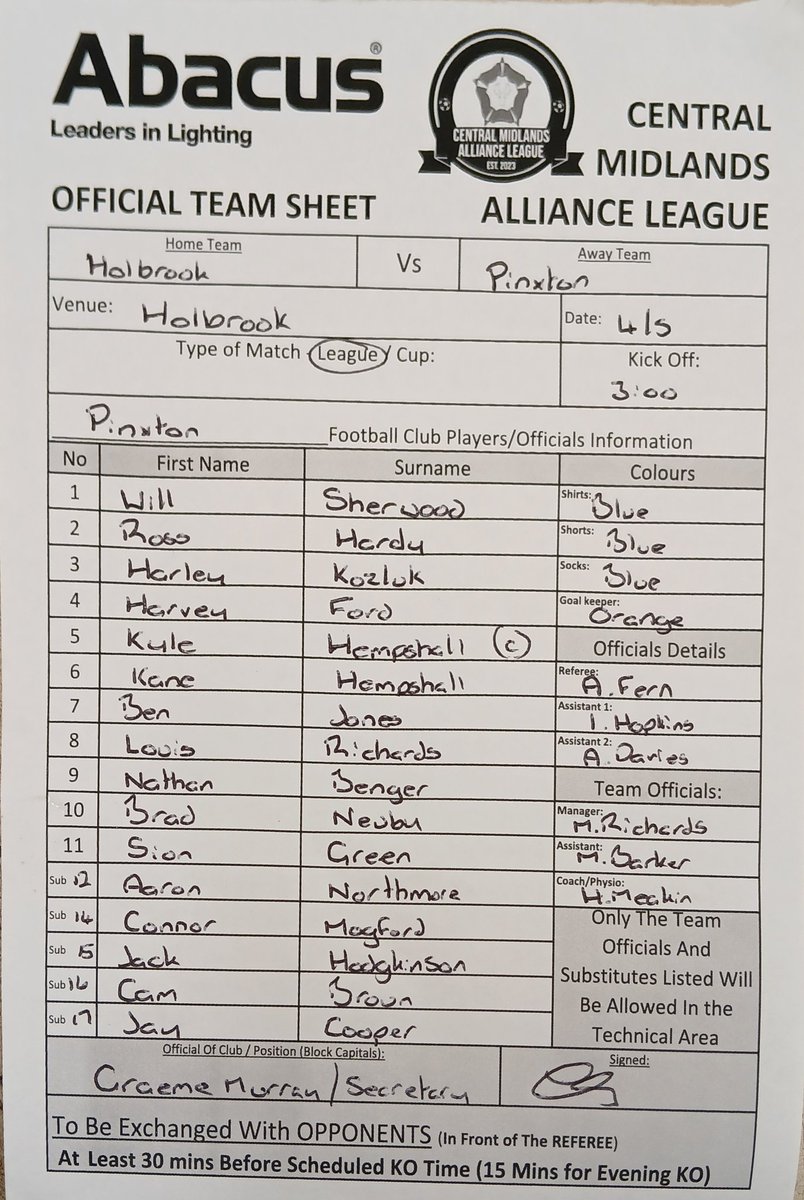 Abacus®
Leaders in Lighting
CENTRAL MIDLANDS
ALLIANCE LEAGUE
EST. 2023
CENTRAL
MIDLANDS
ALLIANCE LEAGUE
OFFICIAL TEAM SHEET
Home Team
Holbrook
Vs
Away Team
Pinxton
Venue: Holbrook
Date: 4/5
Type of Match League / Cup:
Kick Off:
3:00
Pinxton Football Club Players/Officials Information
No First Name Surname Colours
1 Will Sherwood Shirts: Blue
2 Ross Hardy Shorts: Blue
3 Harley Kozluk Socks: Blue
4 Harvey Ford Goal keeper: Orange
5 Kyle Hempshall (c) Officials Details
6 Kane Hempshall Referee: A. Fern
7 Ben Jones Assistant 1: I. Hopkins
8 Louis Richards Assistant 2: A. Davies
9 Nathan Benger Team Officials:
10 Brad Newby Manager: M. Richards
11 Sion Green Assistant: M. Barker
Sub 12 Aaron Northmore Coach/Physio: H. Meakin
Sub 14 Connor Mogford
Sub 15 Jack Hodgkinson
Sub 16 Cam Brown
Sub 17 Jay Cooper
Only The Team
Officials And
Substitutes Listed Will
Be Allowed In the
Technical Area
Official Of Club / Position (Block Capitals):
Graeme Murray / Secretary
Signed:
To Be Exchanged With OPPONENTS (In Front of The REFEREE)
At Least 30 mins Before Scheduled KO Time (15 Mins for Evening KO)